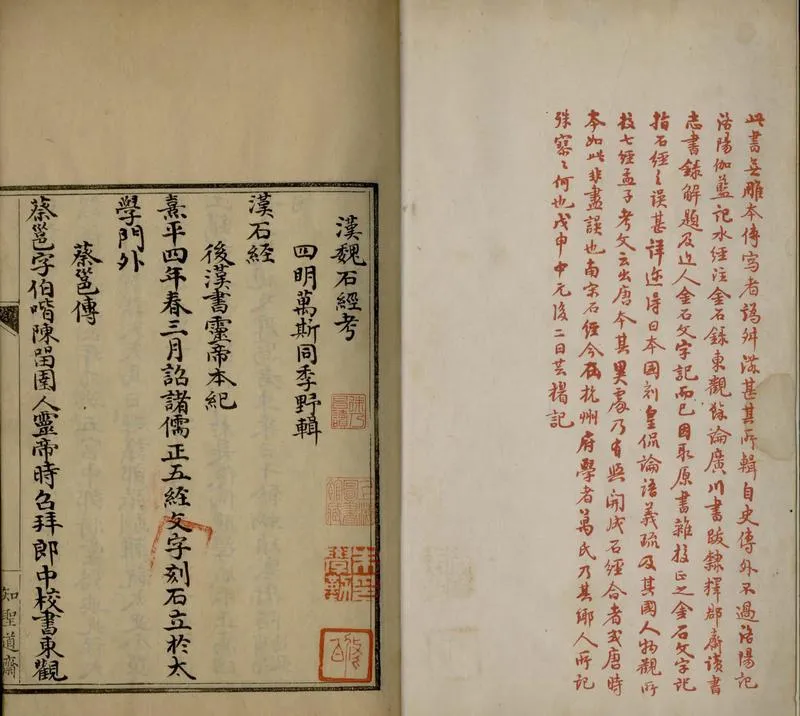 此書無雕本傳寫者譌舛滋甚其所輯自史傳外不過洛陽記
洛陽伽藍記水經注金石錄東觀餘論廣川書跋隸釋郡齋讀書
志書錄解題及近人金石文字記而已因取原書雜校正之金石文字記
指石經之誤甚詳近得日本國刻皇侃論語義疏及其國人物觀所
校七經孟子考文云出唐本其異處乃有與開成石經合者或唐時
本如此非盡誤也南宋石經今存杭州府學者萬氏乃其鄉人所記
殊寥〻何也戊申中元後二日芸楣記
漢魏石經考
四明萬斯同季野輯
漢石經
後漢書靈帝本紀
熹平四年春三月詔諸儒正五經文字刻石立於太
學門外
蔡邕傳
蔡邕字伯喈陳畱圉人靈帝時召拜郎中校書東觀
知聖道齋
修伯